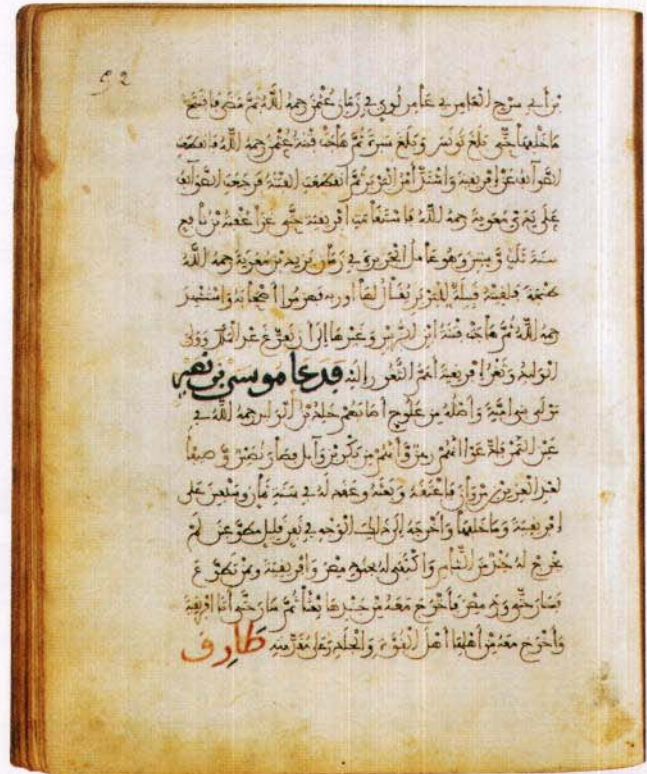 52
بن أبي سرح العامري عامر لوي في زمان عثمن رحمه الله ثم مضى فافتتح
ما خلفها حتى بلغ تونس وبلغ سبرة ثم هاجت فتنة عثمن رحمه الله فانقطعت
الطوائف عن إفريقية واشتد أمر البربر ثم انقطعت الفتنة فرجعت الطوائف
على يدي معوية رحمه الله فاستقامت افريقية حتى غزا عقبة بن نافع
سنة ثلث وستين وهو عامل في زمان يزيد بن معوية رحمه الله
طنجة فلقيته قبيلة للبربر يقال لها اوربه فهزموا أصحابه واستشهد
رحمه الله ثم هاجت فتنة ابن الزبير وغيرها إلى أن تفرغ عبد الملك وولي
الوليد وثغر إفريقية أهم الثغور إليه فدعا موسى بن نصير
مولى بنوا امية وأصله من علوج أصابهم خلد بن الوليد رحمه الله في
عين التمر فادعوا أنهم وأنهم من بكر بن وآيل فصار نصير وصيفا
لعبد العزيز بن مروان فاعتقه وبعثه وعقد له في سنة ثمان وسبعين على
افريقية وما خلفها وأخرجه إلى ذلك الوجه في نفر قليل مطوعين لم
يخرج له جند من الشام واكتفى له بجنود مصر وافريقية ومن تطوع
فسار حتى ورد مصر فأخرج معه من جندها بعثا ثم سار حتى أتا افريقية
وأخرج معه من أهلها أهل القوة والجلد وعلى مقدمته طارق